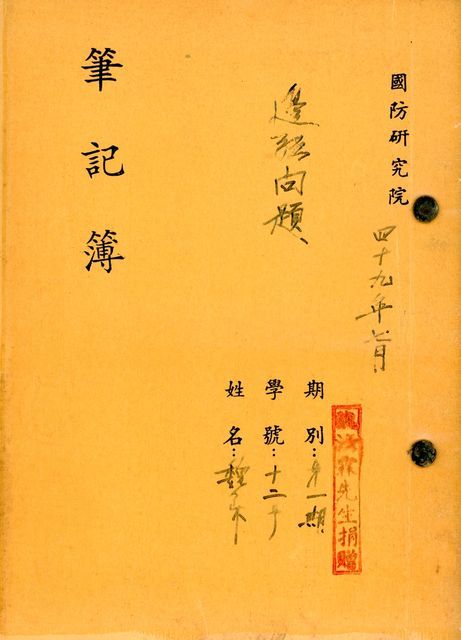 國防研究院
四十九年七月
魏汝霖先生捐贈
邊疆問題、
期別：第一期
學號：十二
姓名：魏
筆記簿